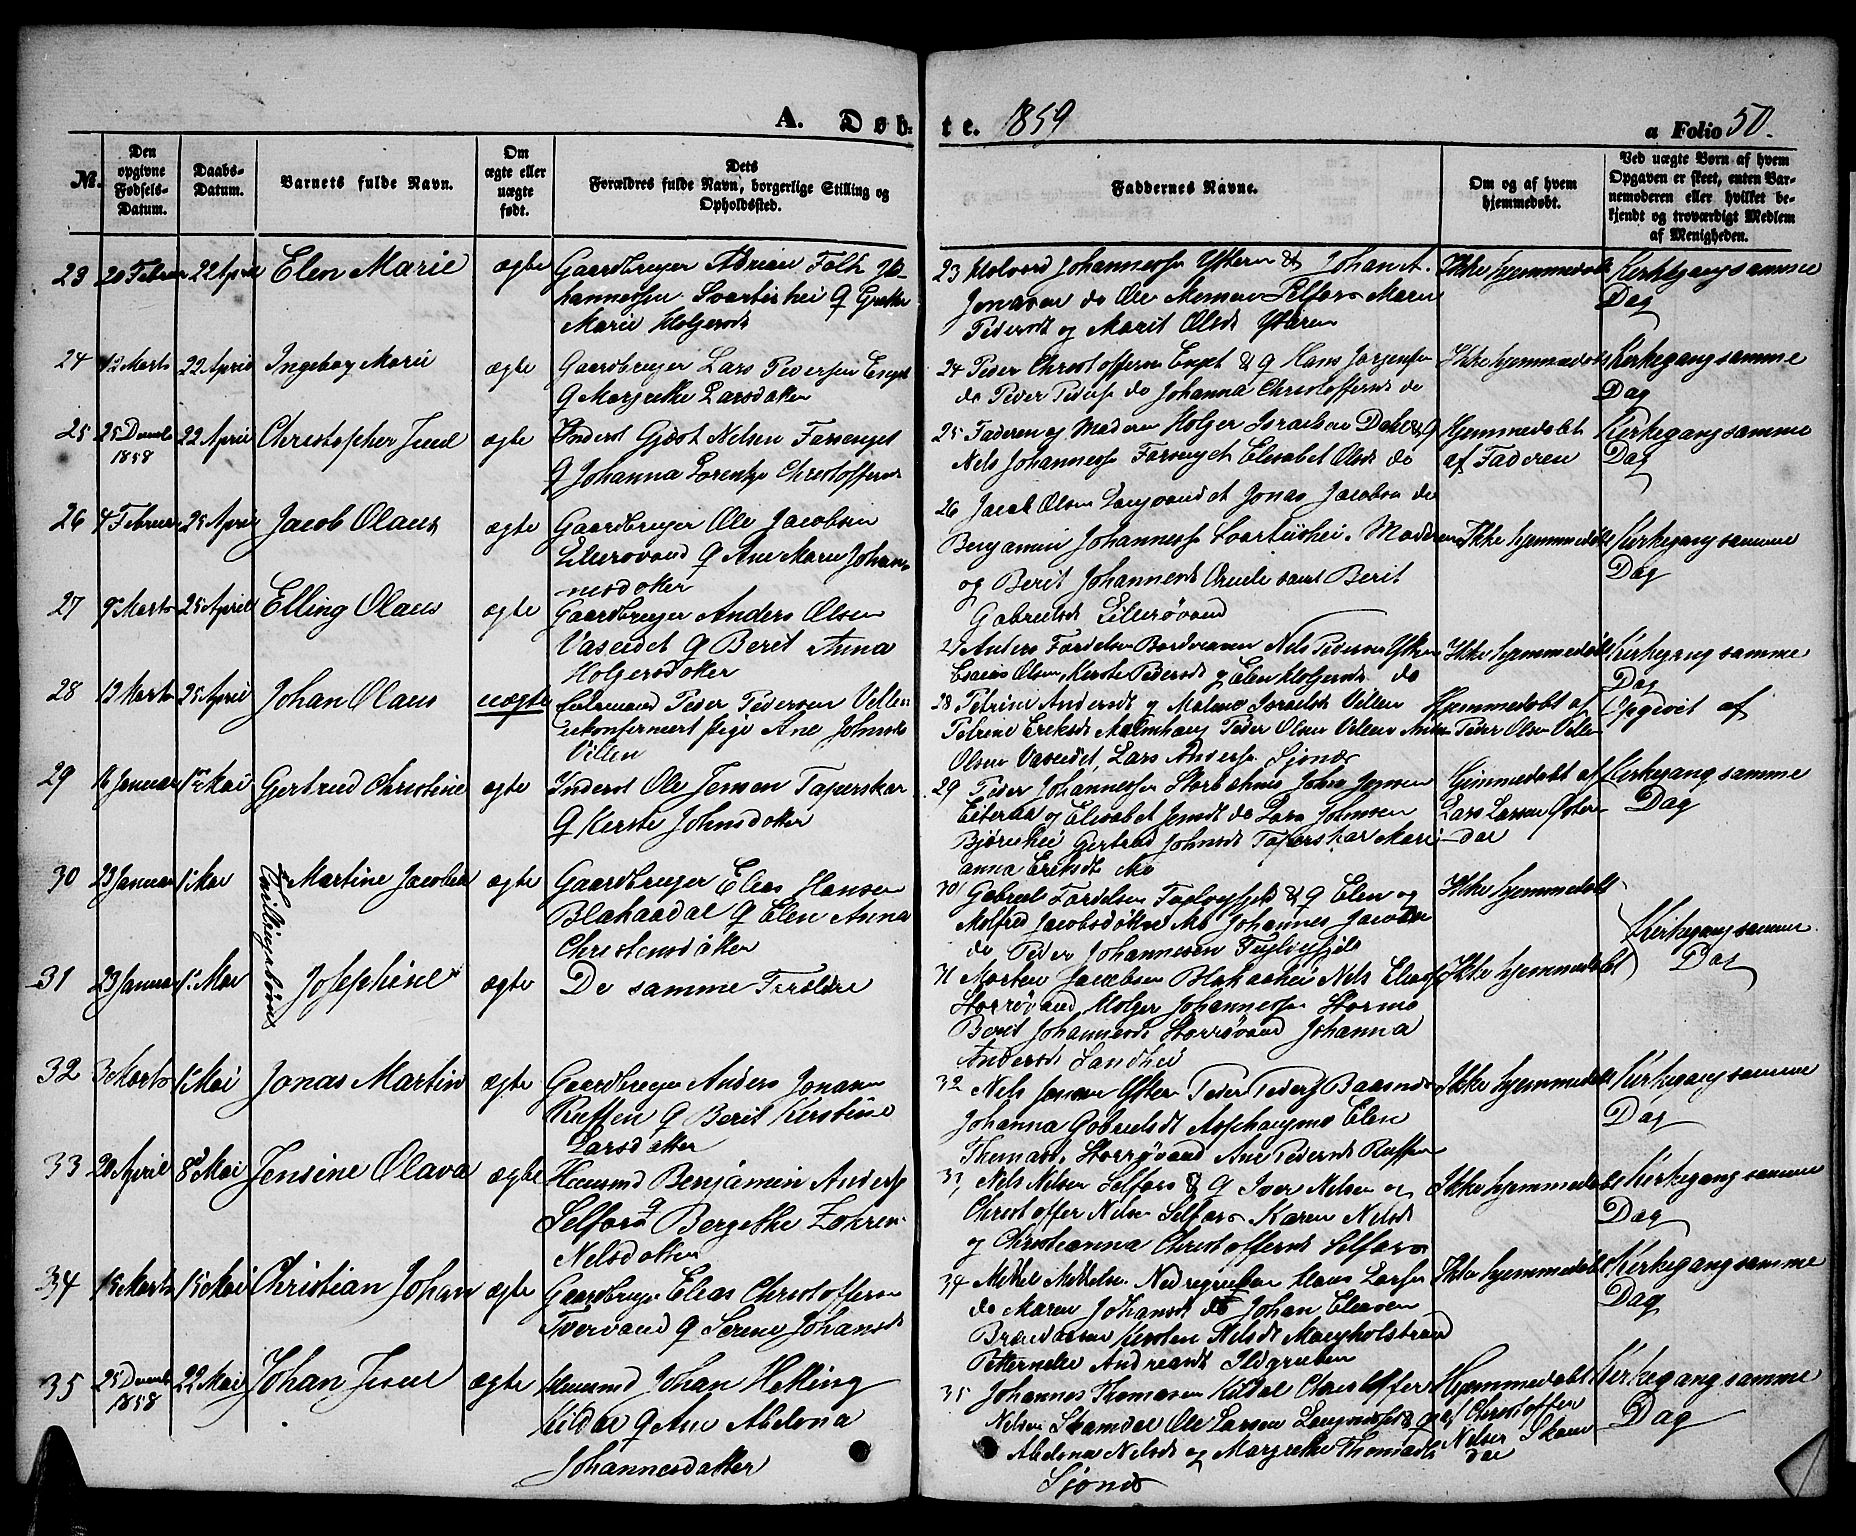 A. Døbte. 1859
a Folio 50.
№.
Den opgivne Fødsels-Datum.
Daabs-Datum.
Barnets fulde Navn.
Om ægte eller uægte født.
Dets Forældres fulde Navn, borgerlige Stilling og Opholdssted.
Faddernes Navne.
Om og af hvem hjemmedøbt.
Ved uægte Børn af hvem Opgaven er skeet, enten Barnemoderen eller hvilket bekjendt og troværdigt Medlem af Menigheden.
23 20 Februar 22 April Elen Marie ægte Gaardbruger Adrian Falk Jo-
hannessen Svartishei & Grethe
Marie Holgersdt
23 Halvord Johannessen Yttern & Johan A.
Jonassen do Ole Monsen Selfors Maren
Pedersdt og Marit Olsdt Ytteren
Ikke hjemmedøbt
Kirkegang samme
Dag
24 12 Marts 22 April Ingeborg Marie ægte Gaardbruger Lars Pedersen Enget
& Margrethe Larsdatter
24 Peder Christoffersen Enget & Q Hans Jørgensen
do Peder Peders. do Johanna Christoffersdt do
Ikke hjemmedøbt
Kirkegang samme
Dag
25 25 Decemb 1858 22 April Christopher Juul ægte Inderst Gjert Nelsen Farsenget
& Johanna Lorentze Christoffersdt
25 Faderen og Moderen Holger Israelsen Dahl & Q
Nels Johannessen Farsenget Elisabet Olsdt do
Hjemmedøbt
af Faderen
Kirkegang samme
Dag
26 4 Februar 25 April Jacob Olaus ægte Gaardbruger Ole Jacobsen
Lillerøvand & Ane Marie Johan-
nesdatter
26 Jacob Olsen Langvandet Jonas Jacobsen do
Benjamin Johannessen Svartishei. Moderen
og Berit Johannesdt samt Berit
Gabrielsdt Lillerøvand
Ikke hjemmedøbt
Kirkegang samme
Dag
27 9 Marts 25 April Elling Olaus ægte Gaardbruger Anders Olsen
Vaseidet & Beret Anna
Holgersdatter
27 Anders Nels Pedersen Yttern
Esaias Olsen, Kerste Pedersdt og Elen Holgersdt do
Ikke hjemmedøbt
Kirkegang samme
Dag
28 12 Marts 25 April Johan Olaus uægte Peder Pedersen Villen
ukonfirmert Pige Ane Johnsdt
Villen
28 Petrine Andersdt og Malene Israelsdt Villen
Petrine Eriksdt Malmhaug Peder Olsen Villen Anders
Olsen Vaseidet, Lars Anderss. Sjonas
Hjemmedøbt af
Peder Olsen Villen
Opgivet af
29 16 Januar 1ste Mai Gertrud Christine ægte Inderst Ole Jensen Taperskar
& Kerste Johnsdatter
29 Peder Johannessen Storbækmo Johan Jonsen
Eiteraa og Elisabet Jensdt do Lars Johnsen
Bjørnhei Gertrud Johnsdt Taperskar Mari-
anna Eriksdt Mo
Hjemmedøbt af
Lars Larsen Ytteren-
dal
Kirkegang samme
Dag
30 23 Januar 1 Mai Martine Jacobea ægte Gaardbruger Elias Hansen
Blakaadal & Elen Anna
Christensdatter
Tvillingebørn
30 Gabriel Fordelsen Fuglvigfjeld & Q Elen og
Molfred Jacobsdøttre Mo Johannes Jacobsen
do Peder Johannesen Fuglvigfjeld
Ikke hjemmedøbt
Kirkegang samme
Dag
31 23 Januar 1 Mai Josephine ægte De samme Forældre
31 Morten Jacobsen Blakaahei Nels Eliass.
Storrøvand Holger Johannessen Stormo
Berit Johannesdt Storrøvand Johanna
Andersdt Sandhei
Ikke hjemmedøbt
32 3 Marts 1 Mai Jonas Martin ægte Gaardbruger Anders Jonassen
Ruffen & Berit Kirstine
Larsdatter
32 Nels Jonssen Ytteren Peder Peders. Baasmo
Johanna Gabrielsdt Elen
Thomasdt Storrøvand Ane Pedersdt Ruffen
Ikke hjemmedøbt
Kirkegang samme
Dag
33 20 April 8d Mai Jensine Olava ægte Huusmd Benjamin Anders.
Selfors & Bergethe
Nelsdatter
33 Nels Nelsen Selfors & Q Iver Nelsen og
Christoffer Nels. Selfors Karen Nelsdt
og Christianna Christoffersdt Selfors
Ikke hjemmedøbt
Kirkegang samme
Dag
34 15 Marts 15 Mai Christian Johan ægte Gaardbruger Elias Christoffersen
Tvervand & Serene Johansdt
34 Mikkel Mikkelsen Nedregruben Hans Larsen
do Maren Johansdt do Johan Eliasen
Kersten Nelsdt Mangholstrand
Petternelle Andreasdt Ildgruben
Ikke hjemmedøbt
Kirkegang samme
Dag
35 25 Decemb 1858 22 Mai Johan Juul ægte Huusmd Johan Helling
Kildal & Ane Abelona
Johannesdatter
35 Johannes Thomassen Kildal Christoffer
Nelsen Skamdal Ole Larsen
Abelona Nelsdt og Margrethe Thomasdt
Sjonas
Hjemmedøbt
af Christoffer
Nelsen Skam-
dal
Kirkegang samme
Dag